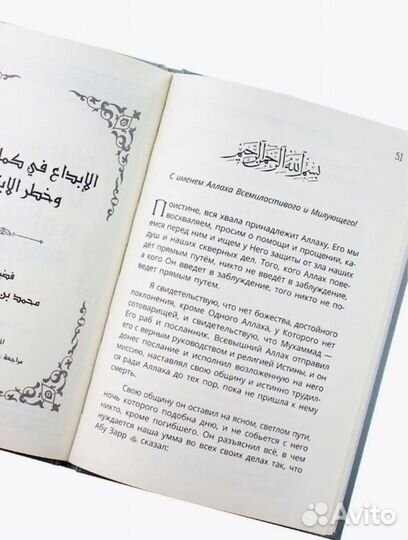 الإبداع في كما
وخطر الإب
فضي
محمد بن
مراجعة
51
بسم الله الرحمن الرحيم
С именем Аллаха Всемилостивого и Милующего!
Поистине, вся хвала принадлежит Аллаху, Его мы
восхваляем, просим о помощи и прощении, кае-
мся перед ним и ищем у Него защиты от зла наших
душ и наших скверных дел. Того, кого Аллах пове-
дёт прямым путём, никто не введёт в заблуждение,
а кого Он введёт в заблуждение, того никто не по-
ведёт прямым путём.
Я свидетельствую, что нет божества, достойного
поклонения, кроме Одного Аллаха, у Которого нет
сотоварищей, и свидетельствую, что Мухаммад —
Его раб и посланник. Всевышний Аллах отправил его
с верным руководством и религией Истины, и он
донёс послание и исполнил возложенную на него
миссию, наставлял свою общину и истинно трудил-
ся ради Аллаха до тех пор, пока не пришла к нему
смерть.
Свою общину он оставил на ясном, светлом пути,
ночь которого подобна дню, и не собьется с него
никто, кроме погибшего. Он разъяснил всё, в чем
нуждается наша умма во всех своих делах так, что
Абу Зарр сказал:
Avito